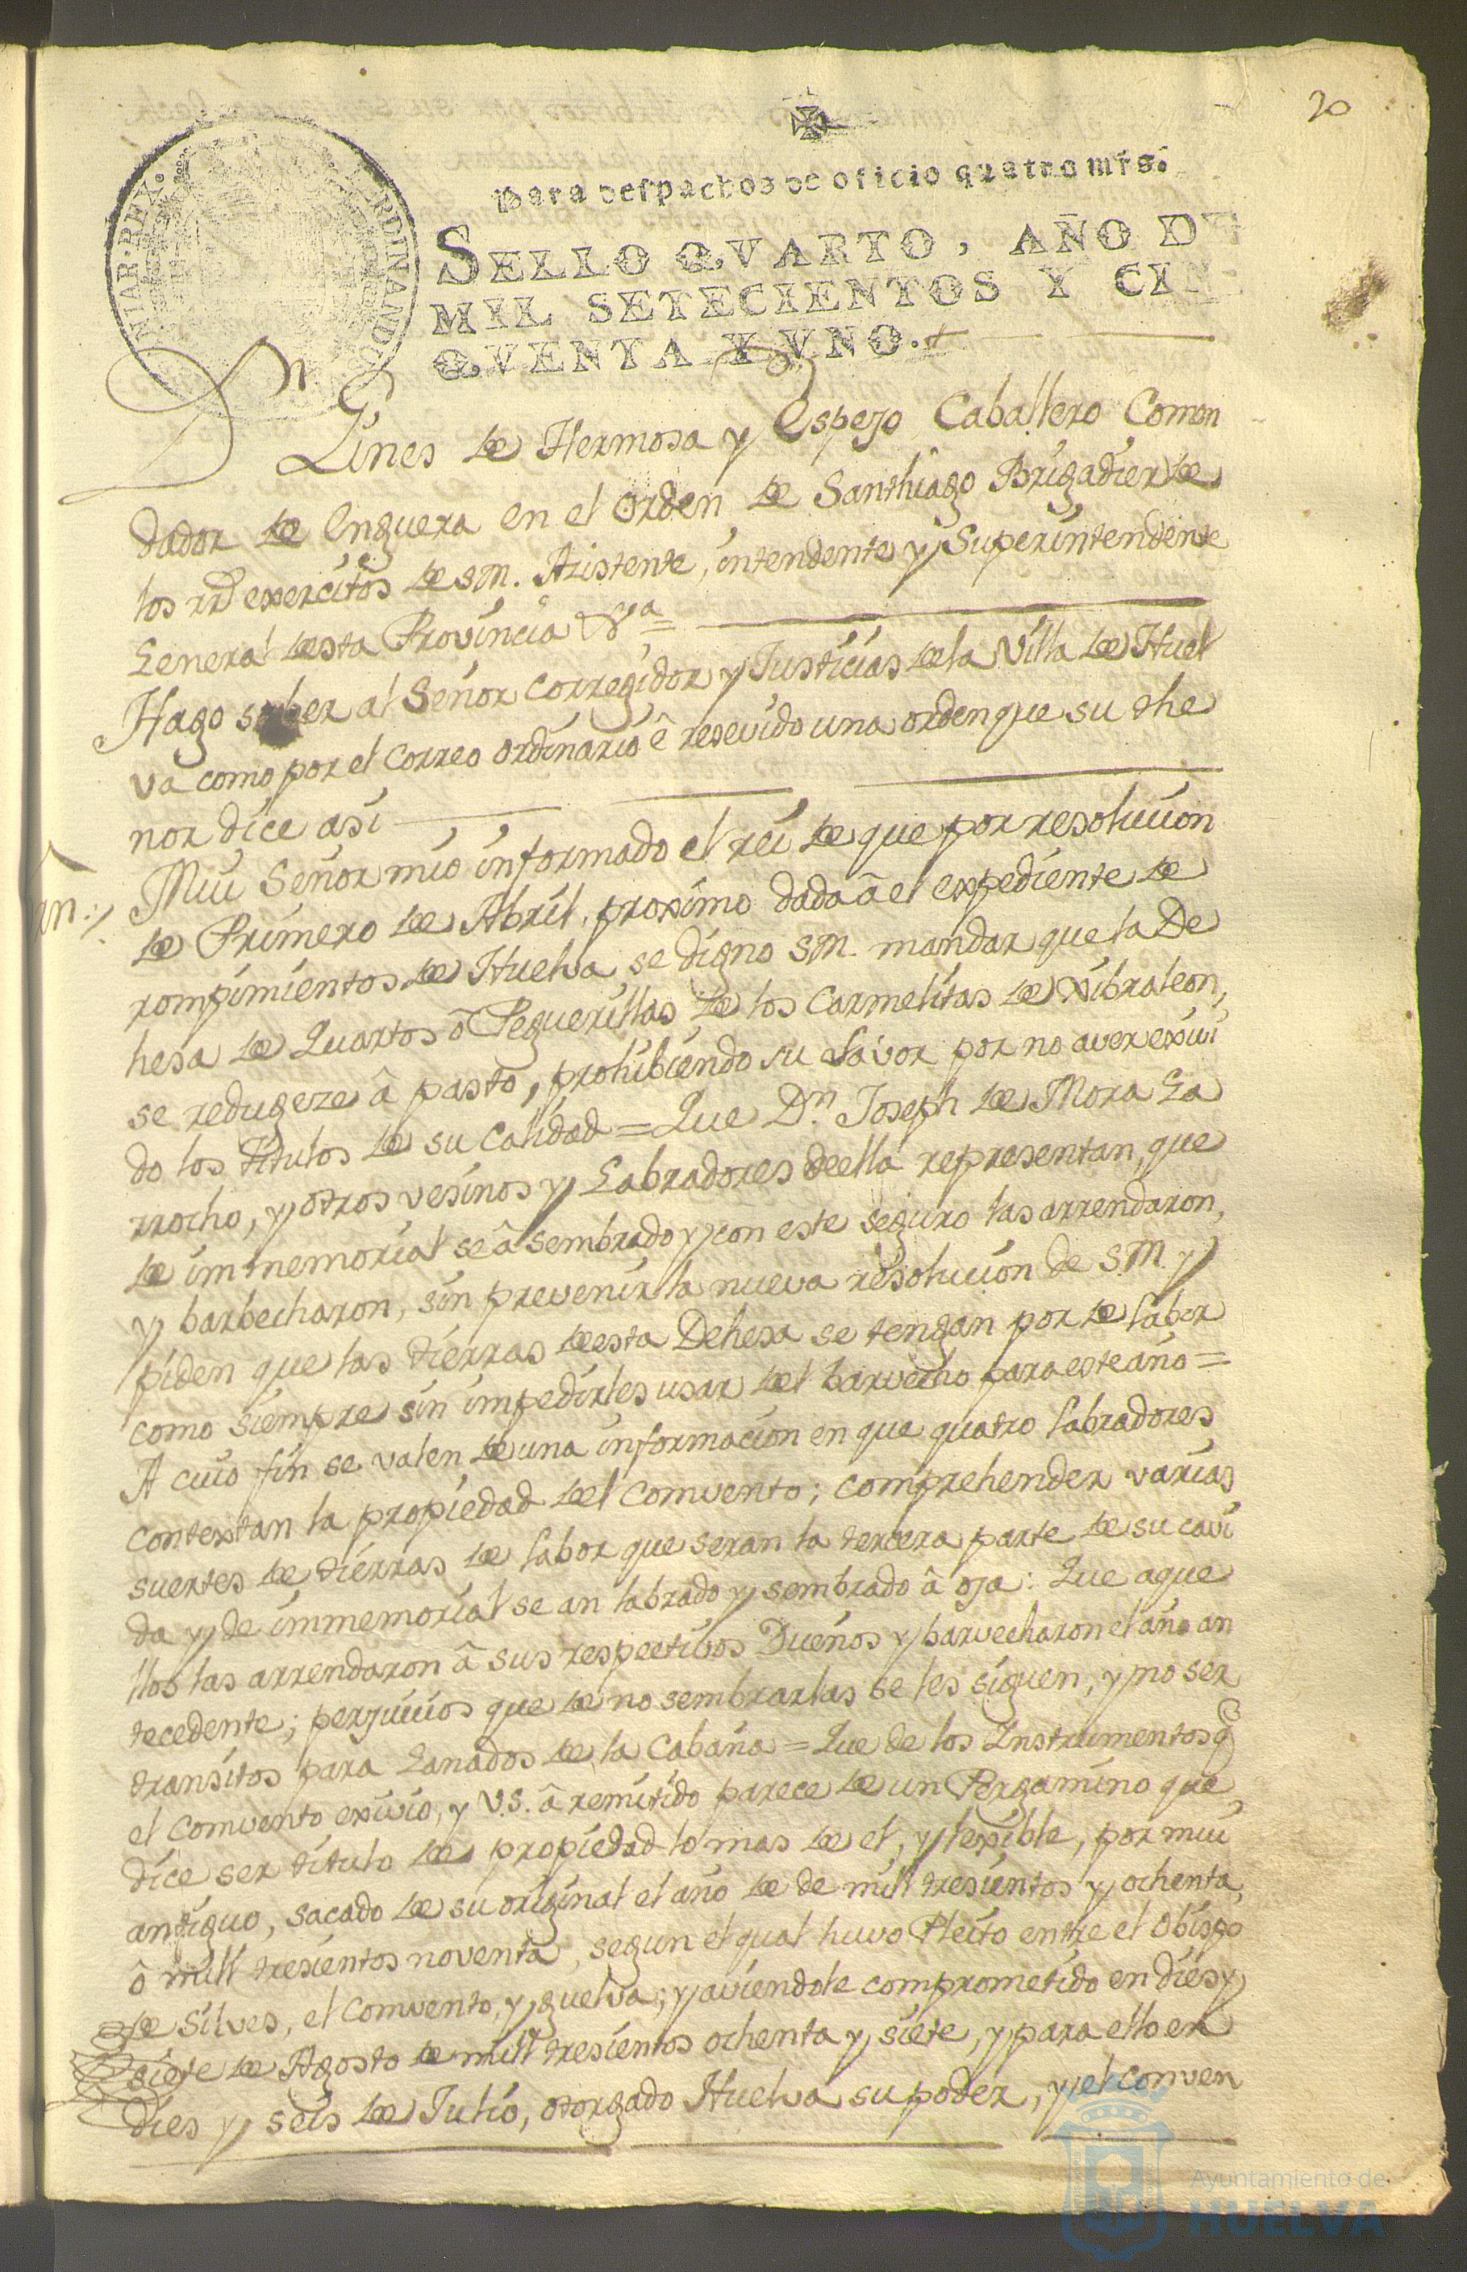 20
Para despachos de oficio quatro mrs.
SELLO QVARTO, AÑO DE
MIL SETECIENTOS Y CIN
QVENTA Y VNO.
NIAR·REX· FERDINANDUS
Dn Gines de Hermosa y Espejo Caballero Comen
dador de Enguera en el orden de Santhiago Brigadier de
los rrs exercitos de S.M. Azistente, intendente y Superintendente
General desta Provincia &ra =
Hago saber al Señor Corregidor y Justicias de la Villa de Huel
va como por el Correo ordinario ê resevido una orden que su the
nor dice asi
Mui Señor mio informado el rei de que por resolucion
de Primero de Abril, proximo dada â el expediente de
rompimientos de Huelva, se digno S.M. mandar que la De
hesa de Quartos ô Peguerillas de los Carmelitas de Xibraleon,
se redugeze â pasto, prohibiendo su labor por no aver exivi
do los titulos de su calidad = Que Dn. Joseph de Mora Ga
rrocho, y otros vesinos y Labradores de ella representan, que
de immemorial se â sembrado y con este seguro las arrendaron,
y barbecharon, sin prevenir la nueva resolucion de S.M. y
piden que las tierras de esta Dehesa se tengan por de labor
como siempre sin impedirles usar del barvecho para este año =
A cuio fin se valen de una informacion en que quatro labradores
contextan la propiedad del Comvento; comprehender varias
suertes de tierras de labor que seran la tercera parte de su cavi
da y de immemorial se an labrado y sembrado â oja: Que aque
llos las arrendaron â sus respectivos Dueños y barvecharon el año an
tecedente; perjuicios que de no sembrarlas se les siguen, y no ser
transitos para Ganados de la Cabaña = Que de los Instrumentos q
el Comvento exivio, y V.S. â remitido parece de un Pergamino que
dice ser titulo de propiedad lo mas de el, y lexible, por mui
antiguo, sacado de su original el año de de mill tresientos y ochenta,
ô mill tresientos noventa, segun el qual huvo Pleito entre el Obispo
de Silves, el Comvento, y guelva; y aviendole comprometido en dies y
siete de Agosto de mill tresientos ochenta y siete, y para ello en
dies y seis de Julio, otorgado Huelva su poder, y el conven
Ayuntamiento de
HUELVA